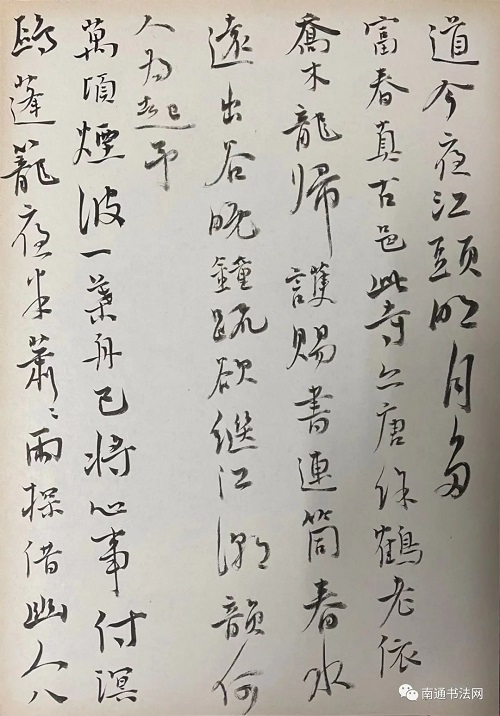 道今夜江頭明月多
富春真古邑此寺亦唐餘鶴老依
喬木龍歸護賜書連筒春水
遠出谷晚鐘疏欲繼江潮韻何
人為起予
萬頃煙波一葉舟已將心事付溟
鷗蓬籠夜半蕭蕭雨探借幽人八
南通书法网